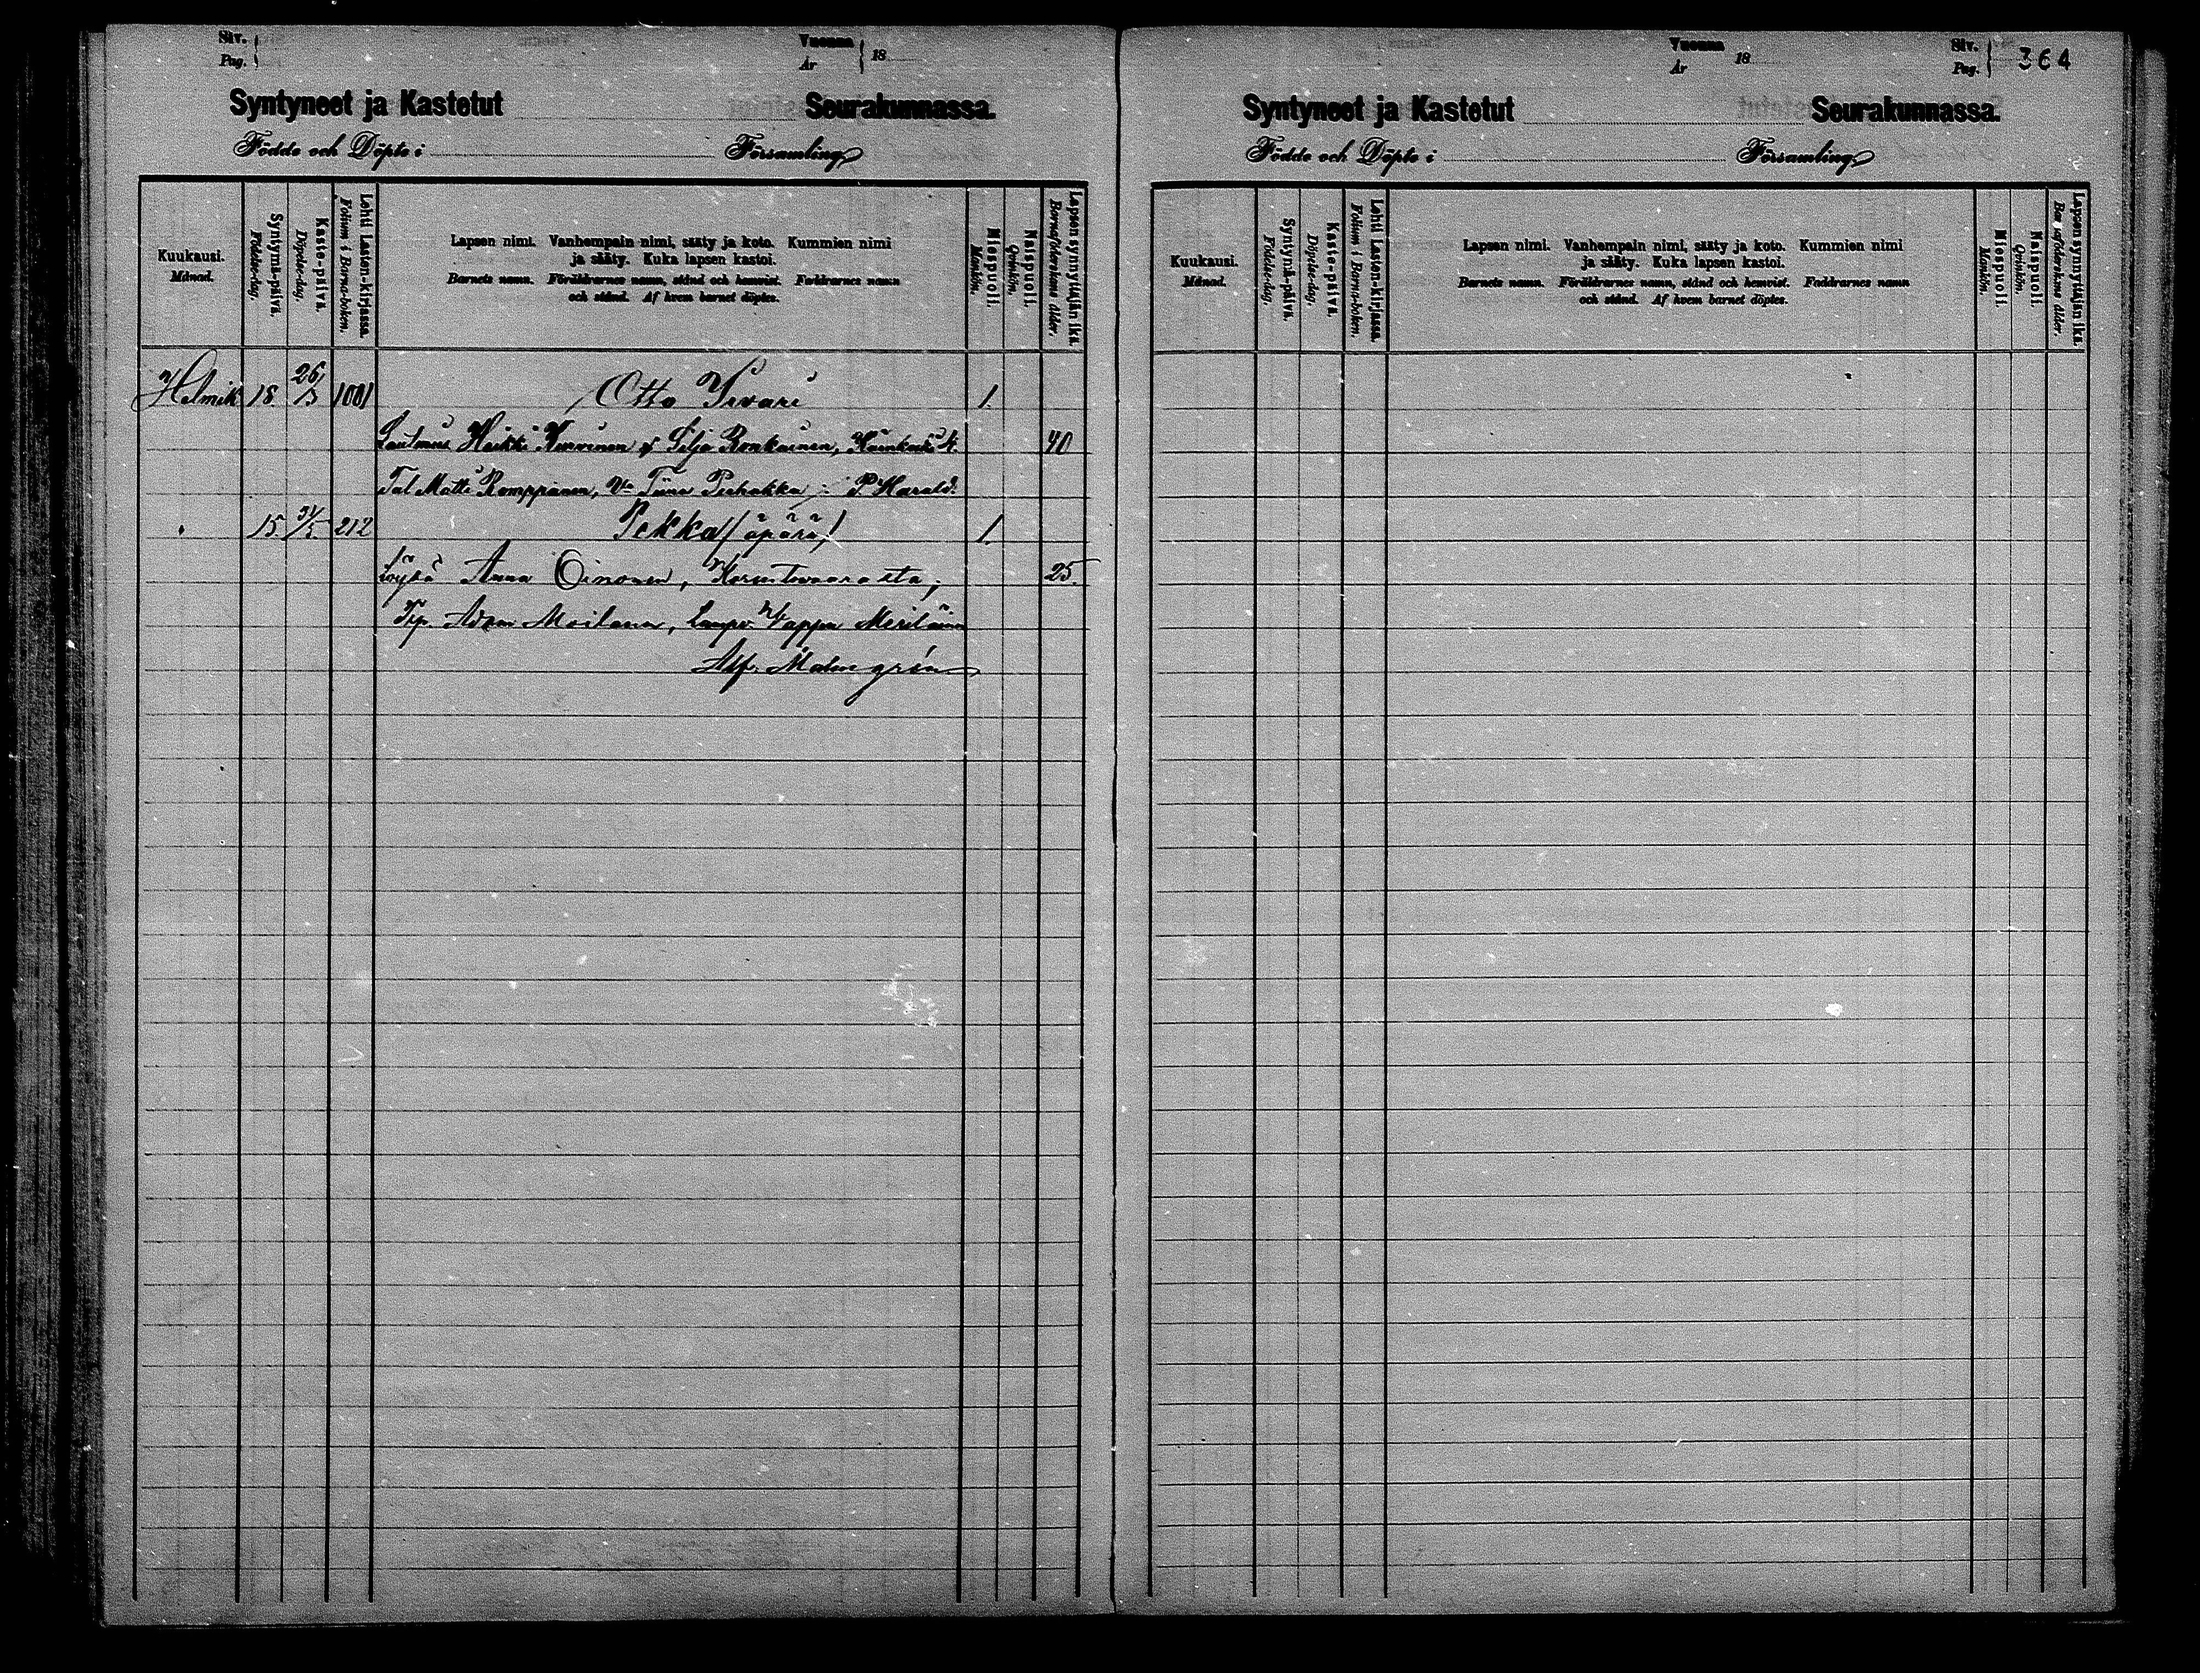 Siv.
Pag.
Vuonna
År
18
Syntyneet ja Kastetut Seurakunnassa.
Födde och Döpte i Församling
Kuukausi.
Månad.
Syntymä-päivä.
Födelse-dag.
Kaste-päivä.
Döpelse-dag.
Lehti Lasten-kirjassa.
Folium i Barna-boken.
Lapsen nimi. Vanhempain nimi, sääty ja koto. Kummien nimi
ja sääty. Kuka lapsen kastoi.
Barnets namn. Föräldrarnes namn, stånd och hemvist. Faddrarnes namn
och stånd. Af hvem barnet döptes.
Miespuoli.
Mankön.
Naispuoli.
Qvinkön.
Lapsen synnyttäjän ikä.
Barnaföderskans ålder.
Helmik 18. 26/3 1001 Otto Iivari 1.
Heikki Karvinen & Silja Ronkainen, 4. 40
Tal Matti Romppainen, Va Tiina Perhakka ; P. Harald.
15. 212 Pekka (äpärä) 1.
Anna Oinonen, 25.
Trp. Adam Moilanen, Lampv. Wappu Meriläinen
Alf. Malmgrén
Vuonna
År
18
Siv.
Pag.
364
Syntyneet ja Kastetut Seurakunnassa.
Födde och Döpte i Församling
Kuukausi.
Månad.
Syntymä-päivä.
Födelse-dag.
Kaste-päivä.
Döpelse-dag.
Lehti Lasten-kirjassa.
Folium i Barna-boken.
Lapsen nimi. Vanhempain nimi, sääty ja koto. Kummien nimi
ja sääty. Kuka lapsen kastoi.
Barnets namn. Föräldrarnes namn, stånd och hemvist. Faddrarnes namn
och stånd. Af hvem barnet döptes.
Miespuoli.
Mankön.
Naispuoli.
Qvinkön.
Lapsen synnyttäjän ikä.
Barnaföderskans ålder.